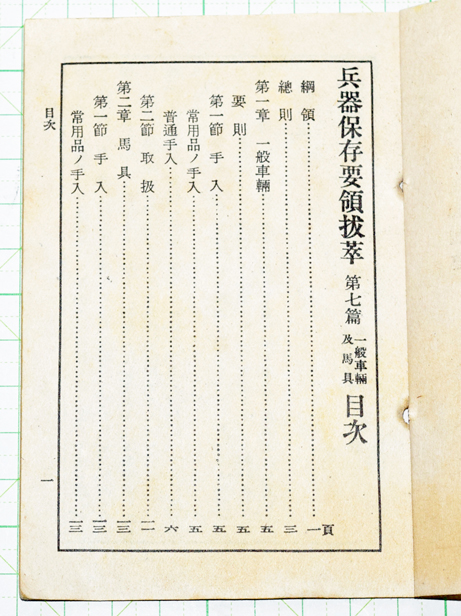 兵器保存要領拔萃 第七篇 一般車輛及馬具 目次
頁
綱領……一
總則……三
第一章 一般車輛……五
要則……五
第一節 手入……五
常用品ノ手入……五
普通手入……六
第二節 取扱……一一
第二章 馬具……一三
第一節 手入……一三
常用品ノ手入……一三
目次
一